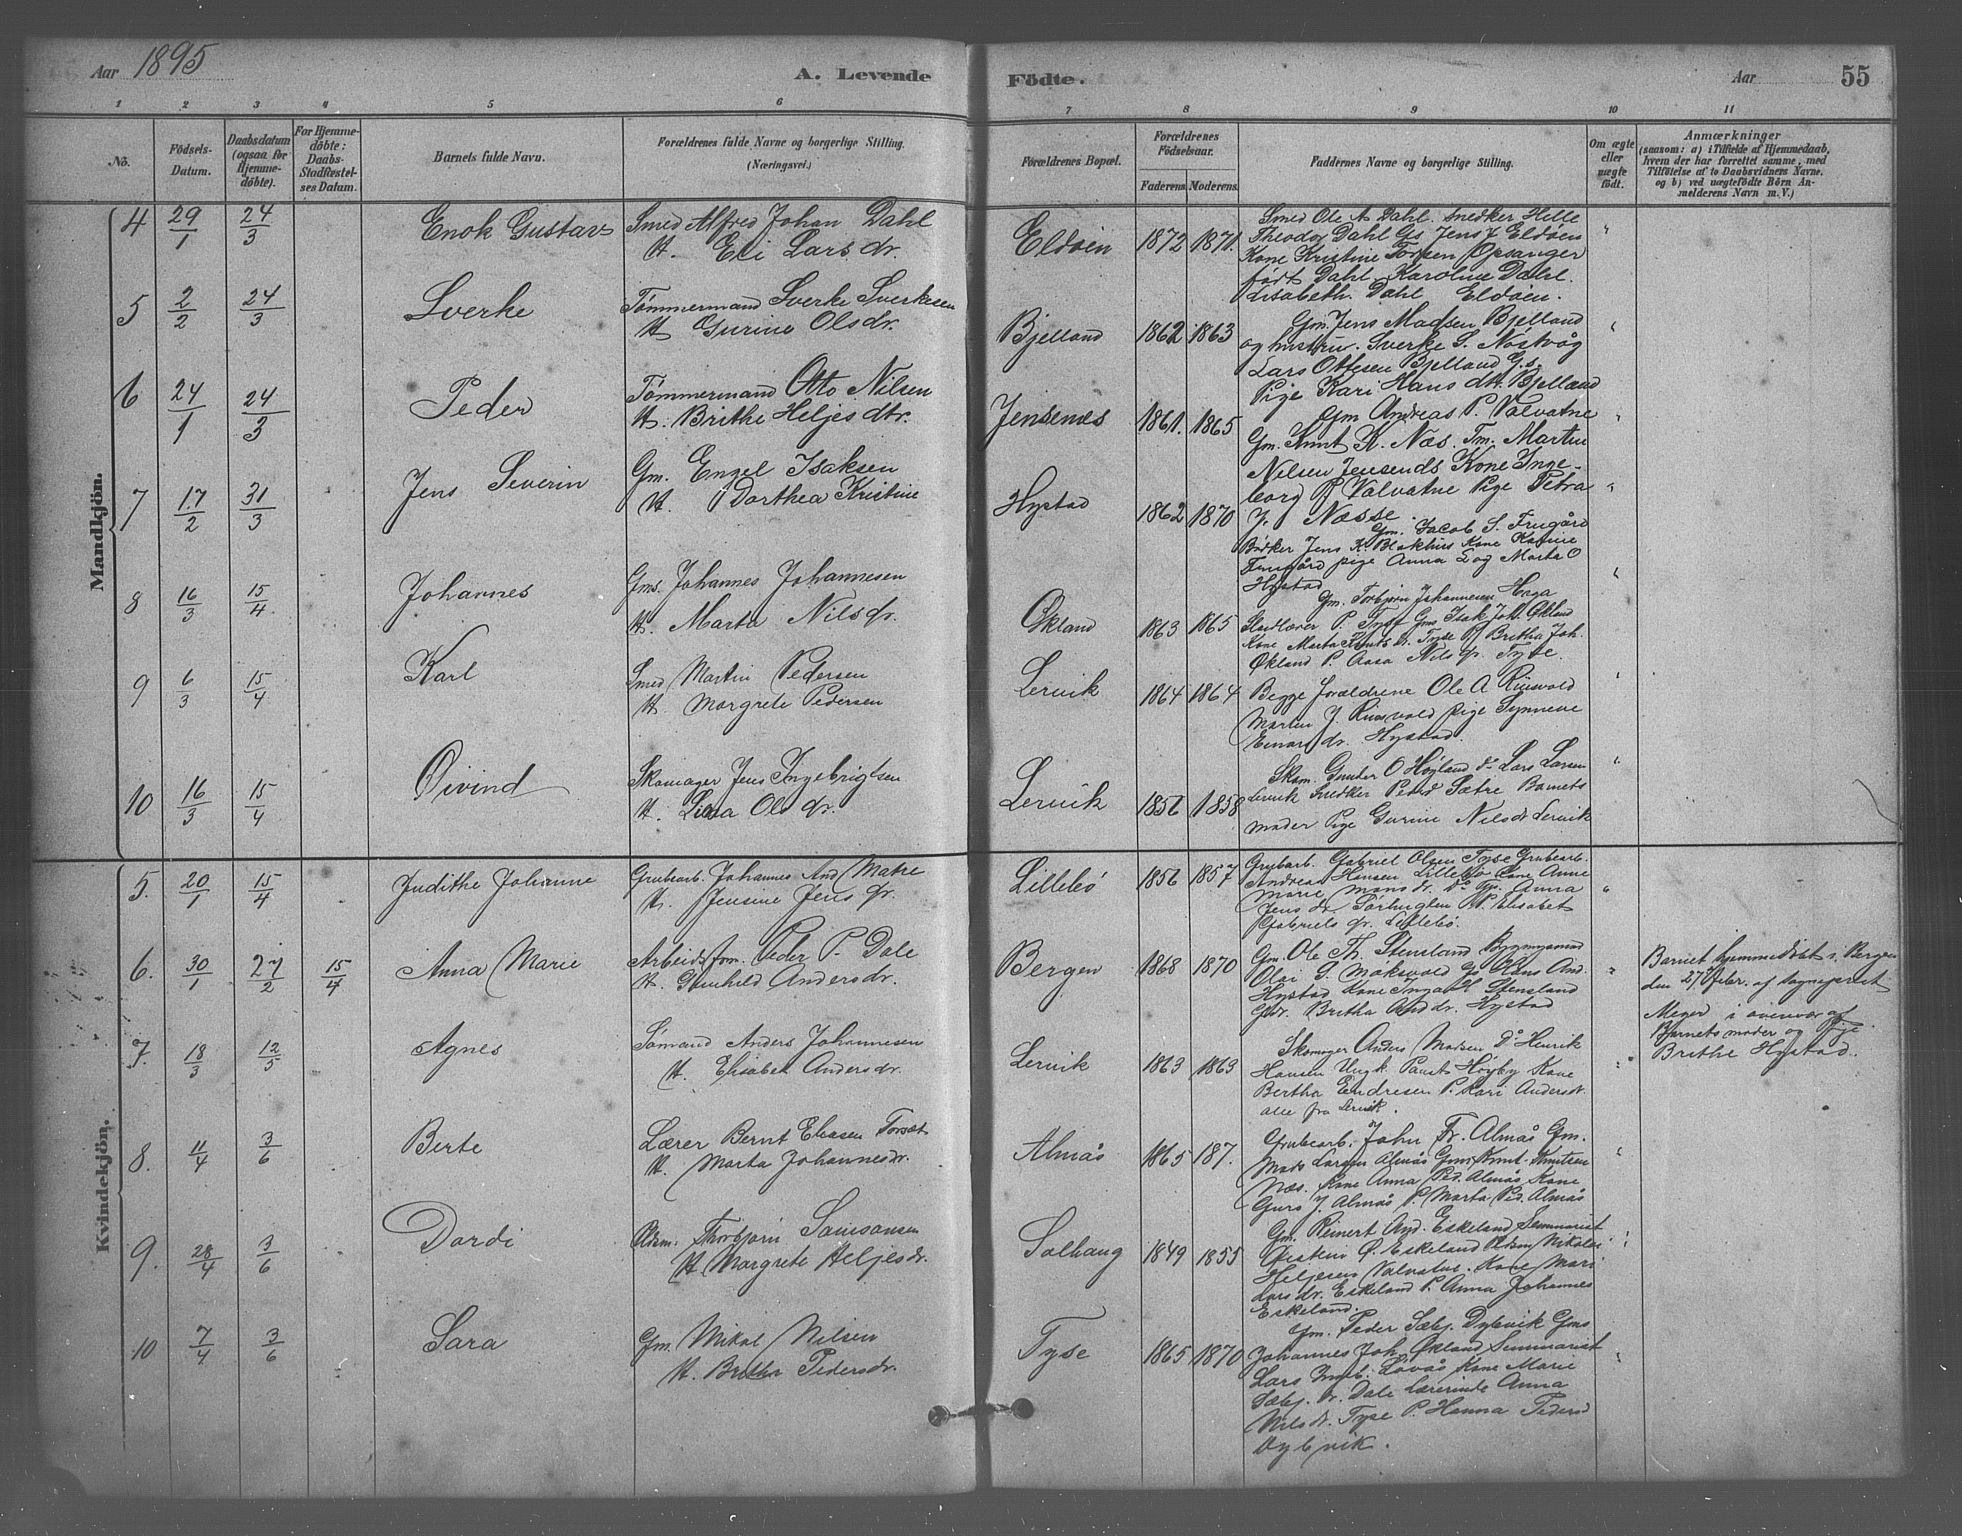 Aar 1895
A. Levende
Födte.
Aar
55
1 2 3 4 5 6 7 8 9 10 11
No.
Födsels-Datum.
Daabsdatum (ogsaa for Hjemmedöbte).
For Hjemmedöbte: Daabs-Stadfæstelses Datum.
Barnets fulde Navn.
Forældrenes fulde Navne og borgerlige Stilling. (Næringsvei.)
Forældrenes Bopæl.
Forældrenes Födselsaar.
Faderens. Moderens.
Faddernes Navne og borgerlige Stilling.
Om ægte eller uægte födt.
Anmærkninger
(saasom: a) i Tilfælde af Hjemmedaab, hvem der har forrettet samme, med Tilföielse af to Daabsvidners Navne, og b) ved uægtefödte Börn Anmelderens Navn m. V.)
Mandkjön.
4 29/1 24/3 Enok Gustav
Smed Alfred Johan Dahl
H. Eli Larsdr.
Eldøen 1872 1871.
Smed Ole A Dahl. Snedker Helle
Theodor Dahl Gs Jens J Eldøen
Kone Kristine Torsen Opsanger
født Dahl. Karoline Dahl.
Lisabeth Dahl Eldøen.
5 2/2 24/3 Sverke
Tømmermand Sverke Sverkesen
H. Gurine Olsdr.
Bjelland 1862 1863
Gm. Jens Madsen Bjelland
og hustru. Sverke S. Nøstvåg
Lars Ottesen Bjelland Gs.
Pige Kari Hans dtr. Bjelland
6 24/1 24/3 Peder
Tømmermand Otto Nilsen
H. Brithe Heljes dtr.
Jensenes 1861. 1865
Gm Andreas P. Valvatne
Gm. Knut K. Næs. Tm. Martin
Nilsen Jensenes Kone Inge-
borg P Valvatne Pige Petra
J. Næsse.
7 17/2 31/3 Jens Severin
Gm. Engel Isaksen
H. Dorthea Kristine
Hystad 1862 1870
Gm. Jacob S. Frugård
Bødker Jens K. Blokhus Kone Karine
Frugård pige Anna L og Marta O
Hystad
8 16/3 15/4 Johannes
Gms. Johannes Johannesen
H. Marta Nilsdr.
Økland 1863 1865
Gm. Torbjørn Johannesen Haga
P. Tyse Gms Isak Joh. Økland
Kone Marta Knuts dr. Tyse P. Britha Joh.
Økland P. Aasa Nilsdr. Tyse.
9 6/3 15/4 Karl
Smed Martin Pedersen
H. Margrete Pedersen
Lervik 1864 1864
Begge forældrene Ole A Rinsvold
Martin J. Rinsvold pige Synneve
Einarsdr. Hystad.
10 16/3 15/4 Øivind
Skomager Jens Ingebrigtsen
H. Lina Olsdr.
Lervik 1856 1858
Skom. Gunder O Høyland do Lars Larsen
Lervik Snedker Peder Sætre Barnets
moder Pige Gurine Nilsdr Lervik
Kvindekjön.
5. 20/1 15/4 Judithe Johanne
Grubearb. Johannes And. Matre
H. Jensine Jens dr.
Lillebø 1856 1857
Grubarb. Gabriel Olsen Tyse Grubearb.
Andreas Hansen Lillebø Kone Anne
Marie Mons dr. do Gp. Anna
Jens dr. Sørhuglen P. Elisabet
Gabriels dr. Lillebø.
6. 30/1 27/2 15/4 Anna Marie
Arbeidsfom. Peder P. Dale
H. Gunhild Andersdr.
Bergen 1868 1870
Gm. Ole Th. Stensland Bygmgsmand
Olai S. Moksvold Gs Hans And.
Hystad Kone Inga H. Stensland
Gdr. Britha And dr. Hystad
Barnet hjemmedöbt i Bergen
den 27 Febr. af sognepræst
Meyer i overvær af
Barnets moder og Pige
Brithe Hystad.
7. 18/3 12/5 Agnes
Sømand Anders Johannesen
H. Elisabet Andersdr.
Lervik 1863 1863
Skomager Anders Madsen Do Henrik
Hansen Ungk. Paust Høyby Kone
Bertha Endresen P. Kari Andersdr.
alle fra Lervik.
8. 11/4 3/6 Berte
Lærer Bernt Eliasen Torsæt
H. Marta Johannesdr.
Almås 1865 187.
Grubearb. John Fr. Almås Gm.
Mads Larsen Almås Gms Knut Knutsen
Næs. Kone Anna Ped. Almås Kone
Guro J. Almås P. Marta Ped. Almås
9. 28/4 3/6 Dordi
Pldsm. Thorbjørn Samsonsen
H Margrete Heljesdr.
Solhaug 1849 1855
Gm. Reinert And. Eskeland Seminarist
Øistein Ø. Eskeland Pldsm Nikolai
Heljesen Valvatne. Kone Mari
Lars dr. Eskeland P. Anna Johannes
Eskeland.
10 7/4 3/6 Sara
Gm. Mikal Nilsen
H. Britha Pedersdr.
Tyse 1865 1870
Gm. Peder Sæbj. Dybvik Gms
Johannes Joh. Økland Seminarist
Lars Ingeb. Løvås Kone Marie
Sæbj. dr. Dale Lærerinde Anna
Nils dr. Tyse P. Hanna Pedersd
Dybvik.